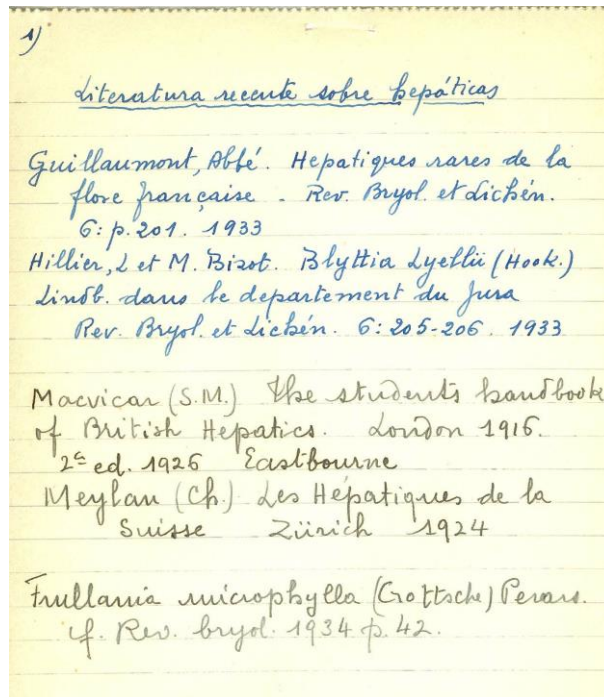 1)
Literatura recente sobre hepáticas
Guillaumont, Abbé. Hepatiques rares de la
flore française. Rev. Bryol. et Lichén.
6: p. 201. 1933
Hillier, L et M. Bizot. Blyttia Lyellii (Hook.)
Lindb. dans le departement du Jura
Rev. Bryol. et Lichén. 6: 205-206. 1933
Macvicar (S.M.) The students handbook
of British Hepatics. London 1916.
2ª ed. 1926 Eastbourne
Meylan (Ch.) Les Hépatiques de la
Suisse Zürich 1924
Frullania microphylla (Gottsche) Pears.
cf. Rev. bryol. 1934 p. 42.